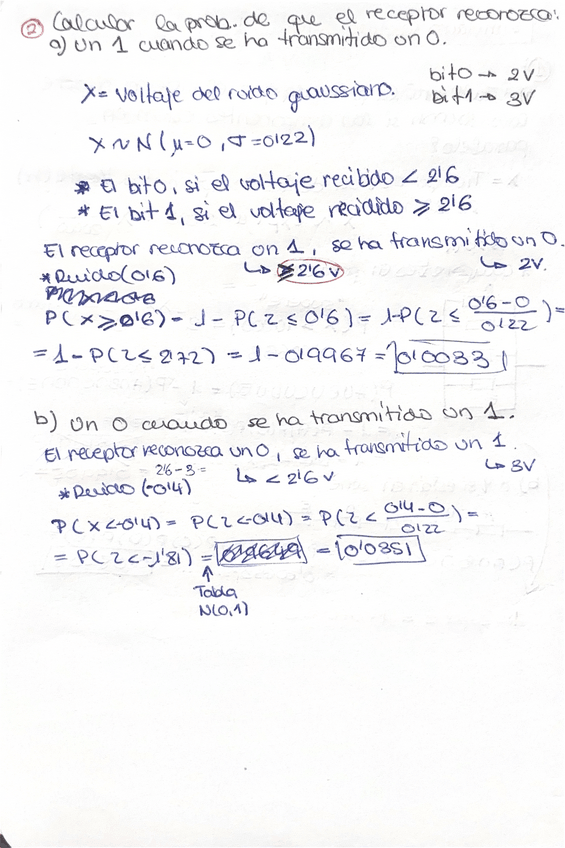 ② Calcular la prob. de que el receptor reconozca:
a) Un 1 cuando se ha transmitido un 0.
bit0 → 2V
bit1 → 3V
X = voltaje del ruido guaussiano.
X ~ N(μ=0, σ=0'22)
* El bit0, si el voltaje recibido < 2'6
* El bit 1, si el voltaje recidido ⩾ 2'6
El receptor reconozca un 1, se ha transmitido un 0.
*Ruido (0'6) ↳ ⩾2'6 v ↳ 2V.
P(X⩾0'6) = 1 - P(Z ≤ 0'6) = 1-P(Z ≤ (0'6-0)/0'22) =
= 1 - P(Z ≤ 2'72) = 1 - 0'9967 = 0'0033
b) Un 0 cuando se ha transmitido un 1.
El receptor reconozca un 0, se ha transmitido un 1.
2'6-3=
*Ruido (-0'4) ↳ < 2'6 v ↳ 3V
P(X<-0'4) = P(Z<-0'4) = P(Z < (0'4-0)/0'22) =
= P(Z<-1'81) = = 0'0351
↑
Tabla
N(0,1)